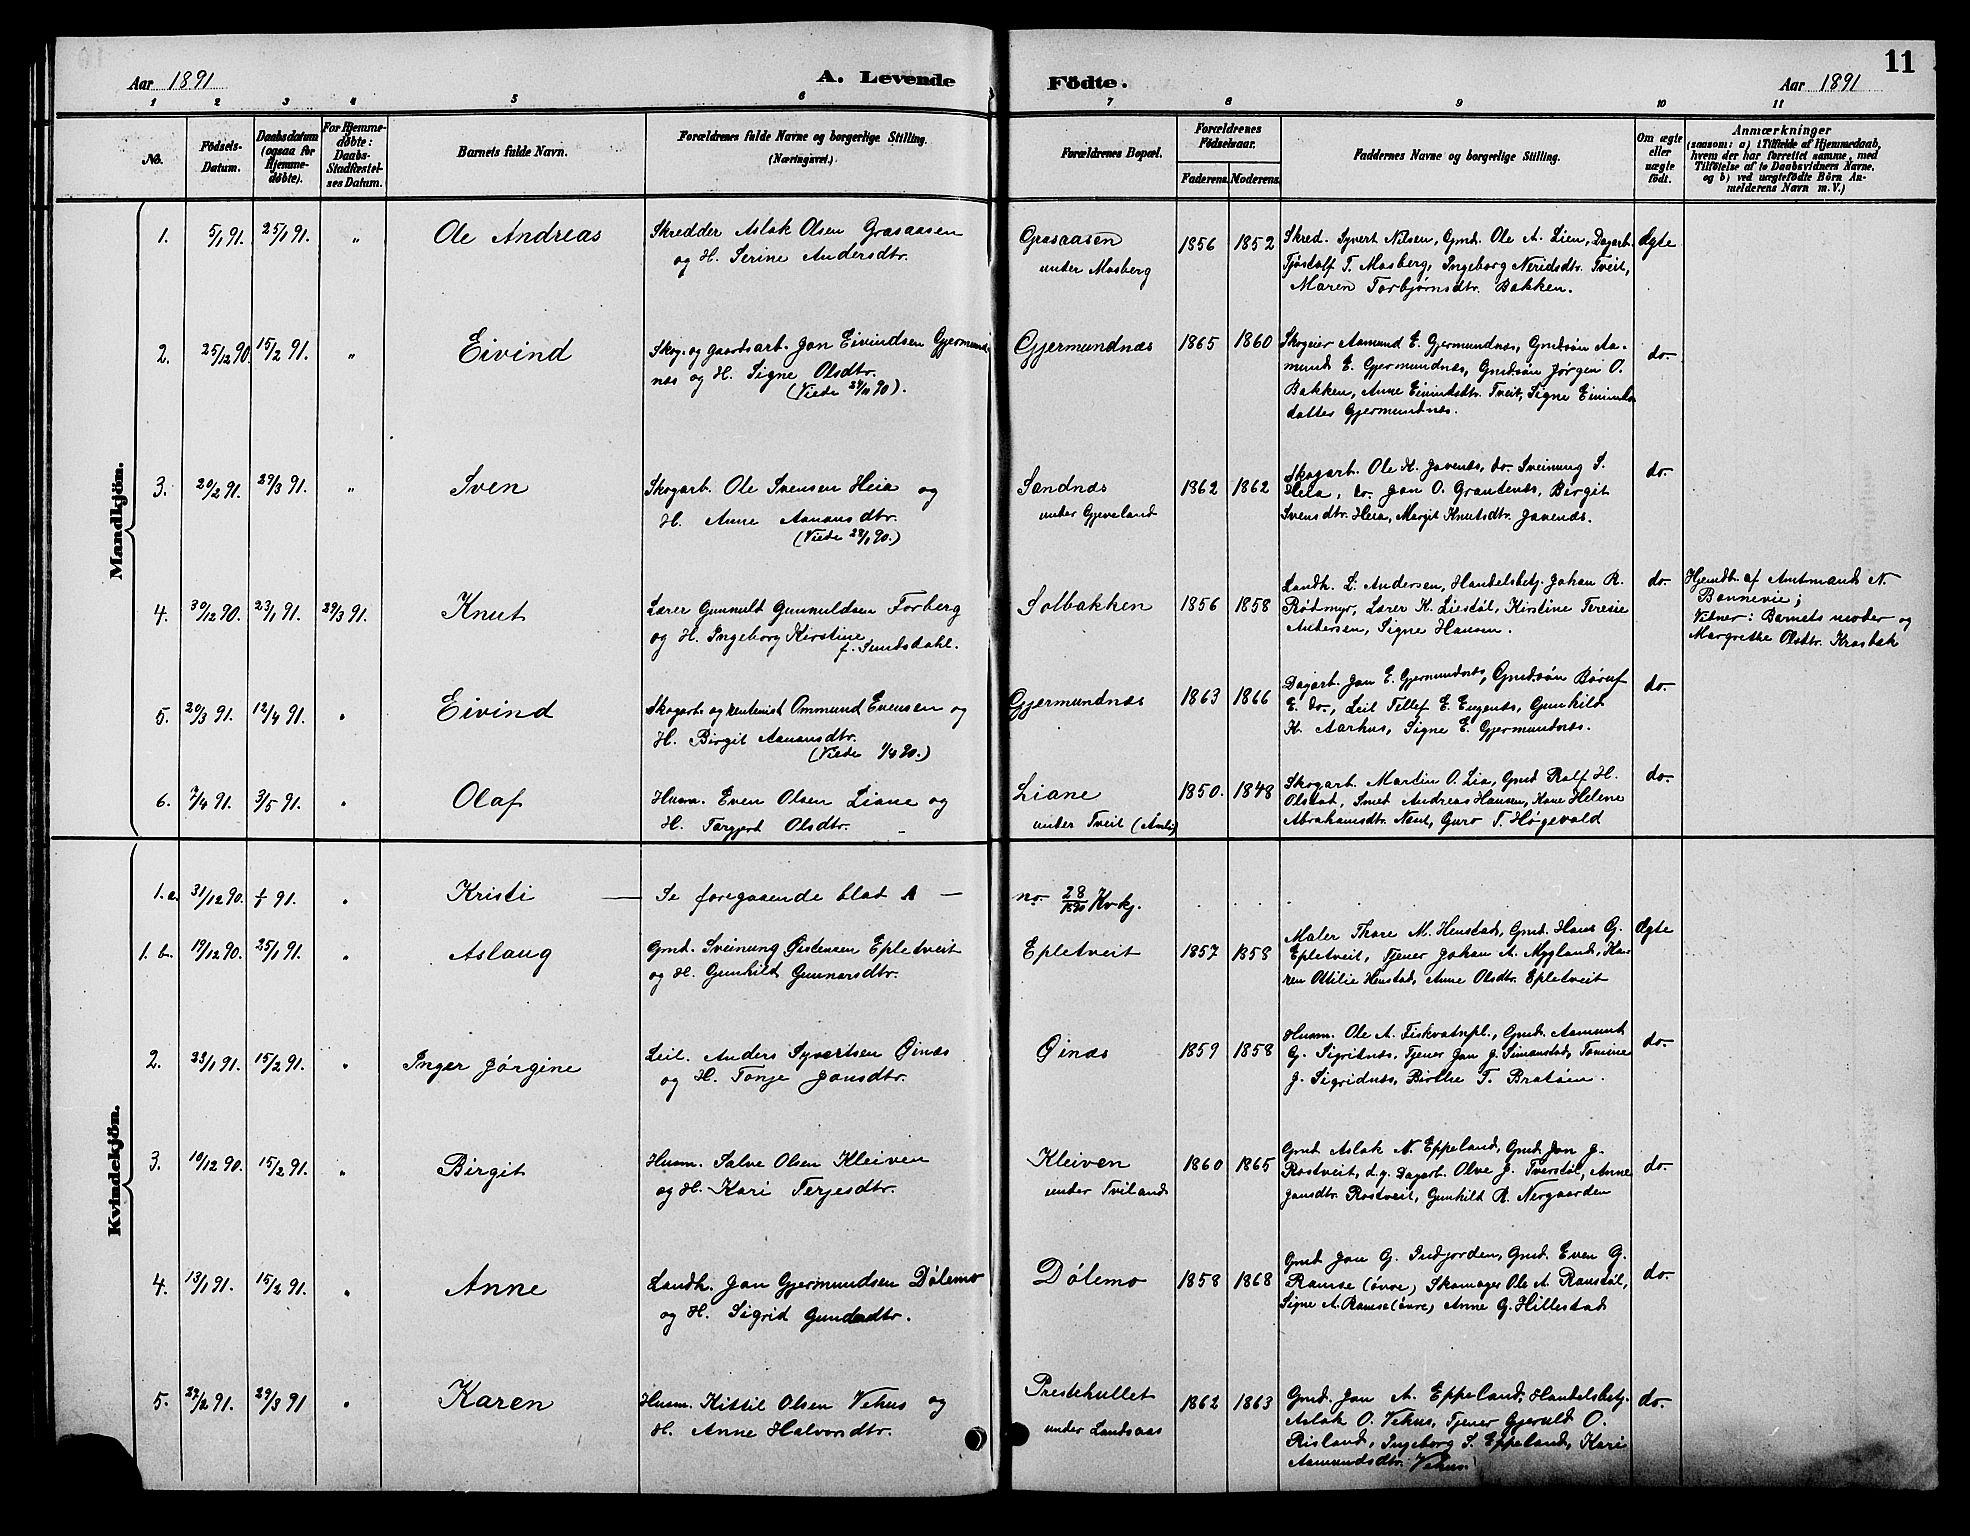 11
Aar 1891
A. Levende
Födte.
Aar 1891
1 2 3 4 5 6 7 8 9 10 11
No.
Födsels-
Datum.
Daabsdatum
(ogsaa for
Hjemme-
døbte).
For Hjemme-
døbte:
Daabs-
Stadfæstel-
ses Datum.
Barnets fulde Navn.
Forældrenes fulde Navne og borgerlige Stilling.
(Næringsvei.)
Forældrenes Bopæl.
Forældrenes
Födselsaar.
Faderens. Moderens.
Faddernes Navne og borgerlige Stilling.
Om ægte
eller
uægte
født.
Anmærkninger
(saasom: a) i Tilfælde af Hjemmedaab,
hvem der har forrettet samme, med
Tilføielse af to Daabsvidners Navne.
og b) ved uægtefødte Börn An-
melderens Navn m. V.)
Mandkjön.
1. 5/1 91. 25/1 91. " Ole Andreas
Skredder Aslak Olsen Grasaasen
og H. Serine Andersdtr.
Grasaasen
under Mosberg
1856 1852
Skred. Syvert Nilsen, Gmd. Ole A. Lien, Dagarb.
Tjøstolf T. Mosberg, Ingeborg Neridsdtr. Tveit,
Maren Torbjørnsdtr. Bakken.
Ægte
2. 25/12 90. 15/2 91. " Eivind
Skog- og gaardsarb. Jon Eivindsen Gjermund-
næs og H. Signe Olsdtr.
(Viede 24/11 90).
Gjermundnæs
1865 1860
Skogeier Aamund E. Gjermundnæs, Gmdsøn Aa-
mund E. Gjermundnæs, Gmdsøn Jørgen O.
Bakken, Anne Eivindsdtr. Tveit, Signe Eivinds
datter Gjermundnæs.
do.
3. 20/2 91. 29/3 91. " Sven
Skogarb. Ole Svensen Heia og
H. Anne Aanonsdtr.
(Viede 29/1 90.)
Sandnæs
under Gjeveland
1862 1862
Skogarb. Ole H. Jovenæs, do. Sveinung S.
Heia, do. Jon O. Grautenæs, Birgit
Svensdtr. Heia, Margit Knutsdtr. Jovenæs.
do.
4. 30/12 90. 23/1 91. 29/3 91. Knut
Lærer Gunnuld Gunnuldsen Forberg
og H. Ingeborg Kirstine
f. Sundsdahl.
Solbakken
1856 1858
Landh. L. Andersen, Handelsbetj. Johan R.
Rødmyr, Lærer K. Liestøl, Kirstine Teresie
Andersen, Signe Hansen.
do.
Hjemdt. af Amtmand N.
Bonnevie;
Vidner: Barnets moder og
Margrethe Olsdtr. Krosbak
5. 20/3 91. 12/4 91. " Eivind
Skogarb. og rentenist Ommund Evensen og
H. Birgit Aanonsdtr.
(Viede 1/4 90.)
Gjermundnæs
1863 1866
Dagarb. Jon E. Gjermundnæs, Gmdsøn Børuf
E. do, Leil. Tellef E. Eugenæs, Gunhild
K. Aarhus, Signe E. Gjermundnæs.
do.
6. 7/4 91. 3/5 91. " Olaf
Husm. Even Olsen Liane og
H. Torgjerd Olsdtr.
Liane
under Tveit (Aamli)
1850. 1848
Skogarb. Martin O. Lia, Gmd Rolf H.
Olstad, Smed Andreas Hansen, Kone Helene
Abrahamsdtr. Næs, Guro T. Høgevold
do.
Kvindekjön.
1.a. 31/12 90. 1/1 91. " Kristi — Se foregaaende blad A —
no. 28/1890 Kvkj.
1.b. 19/12 90. 25/1 91. " Aslaug
Gmd. Sveinung Øistensen Epletveit
og H. Gunhild Gunnarsdtr.
Epletveit
1857 1858
Maler Thore M. Henstad, Gmd. Hans G.
Epletveit, Tjener Johan A. Mygland, Ka-
ren Ottilie Henstad, Anne Olsdtr. Epletveit
Ægte
2. 23/1 91. 15/2 91. " Inger Jørgine
Leil. Anders Syvertsen Øinæs
og H. Tonje Jonsdtr.
Øinæs
1859 1858
Husm. Ole A. Fiskvatnpl., Gmd. Aamund
G. Sigridnæs, Tjener Jon J. Simonstad, Tomine
J. Sigridnæs, Birthe T. Bratøen.
do.
3. 19/12 90. 15/2 91. " Birgit
Husm. Salve Olsen Kleiven
og H. Kari Terjesdtr.
Kleiven
under Tviland
1860 1865
Gmd Aslak N. Eppeland, Gmd. Jon J.
Rostveit, d.y. Dagarb. Olve J. Tverstøl, Anne
Jonsdtr. Rostveit, Gunhild R. Nergaarden
do.
4. 13/1 91. 15/2 91. " Anne
Landh. Jon Gjermundsen Dölemo
og H. Sigrid Gundersdtr.
Dölemo
1858 1868
Gmd Jon G. Indjorden, Gmd. Even G.
Ramse (øvre) Skomager Ole A. Ramstøl,
Signe A. Ramse (øvre) Anne G. Hillestad
do.
5. 27/2 91. 29/3 91 " Karen
Husm. Kittil Olsen Vehus og
H. Anne Halvorsdtr.
Prestehullet
under Landsaas
1862 1863
Gmd. Jon A. Eppeland, Handelsbetj.
Aslak O. Vehus, Tjener Gjeruld O.
Risland, Ingeborg S. Eppeland, Kari
Aamundsdtr. Vehus.
do.